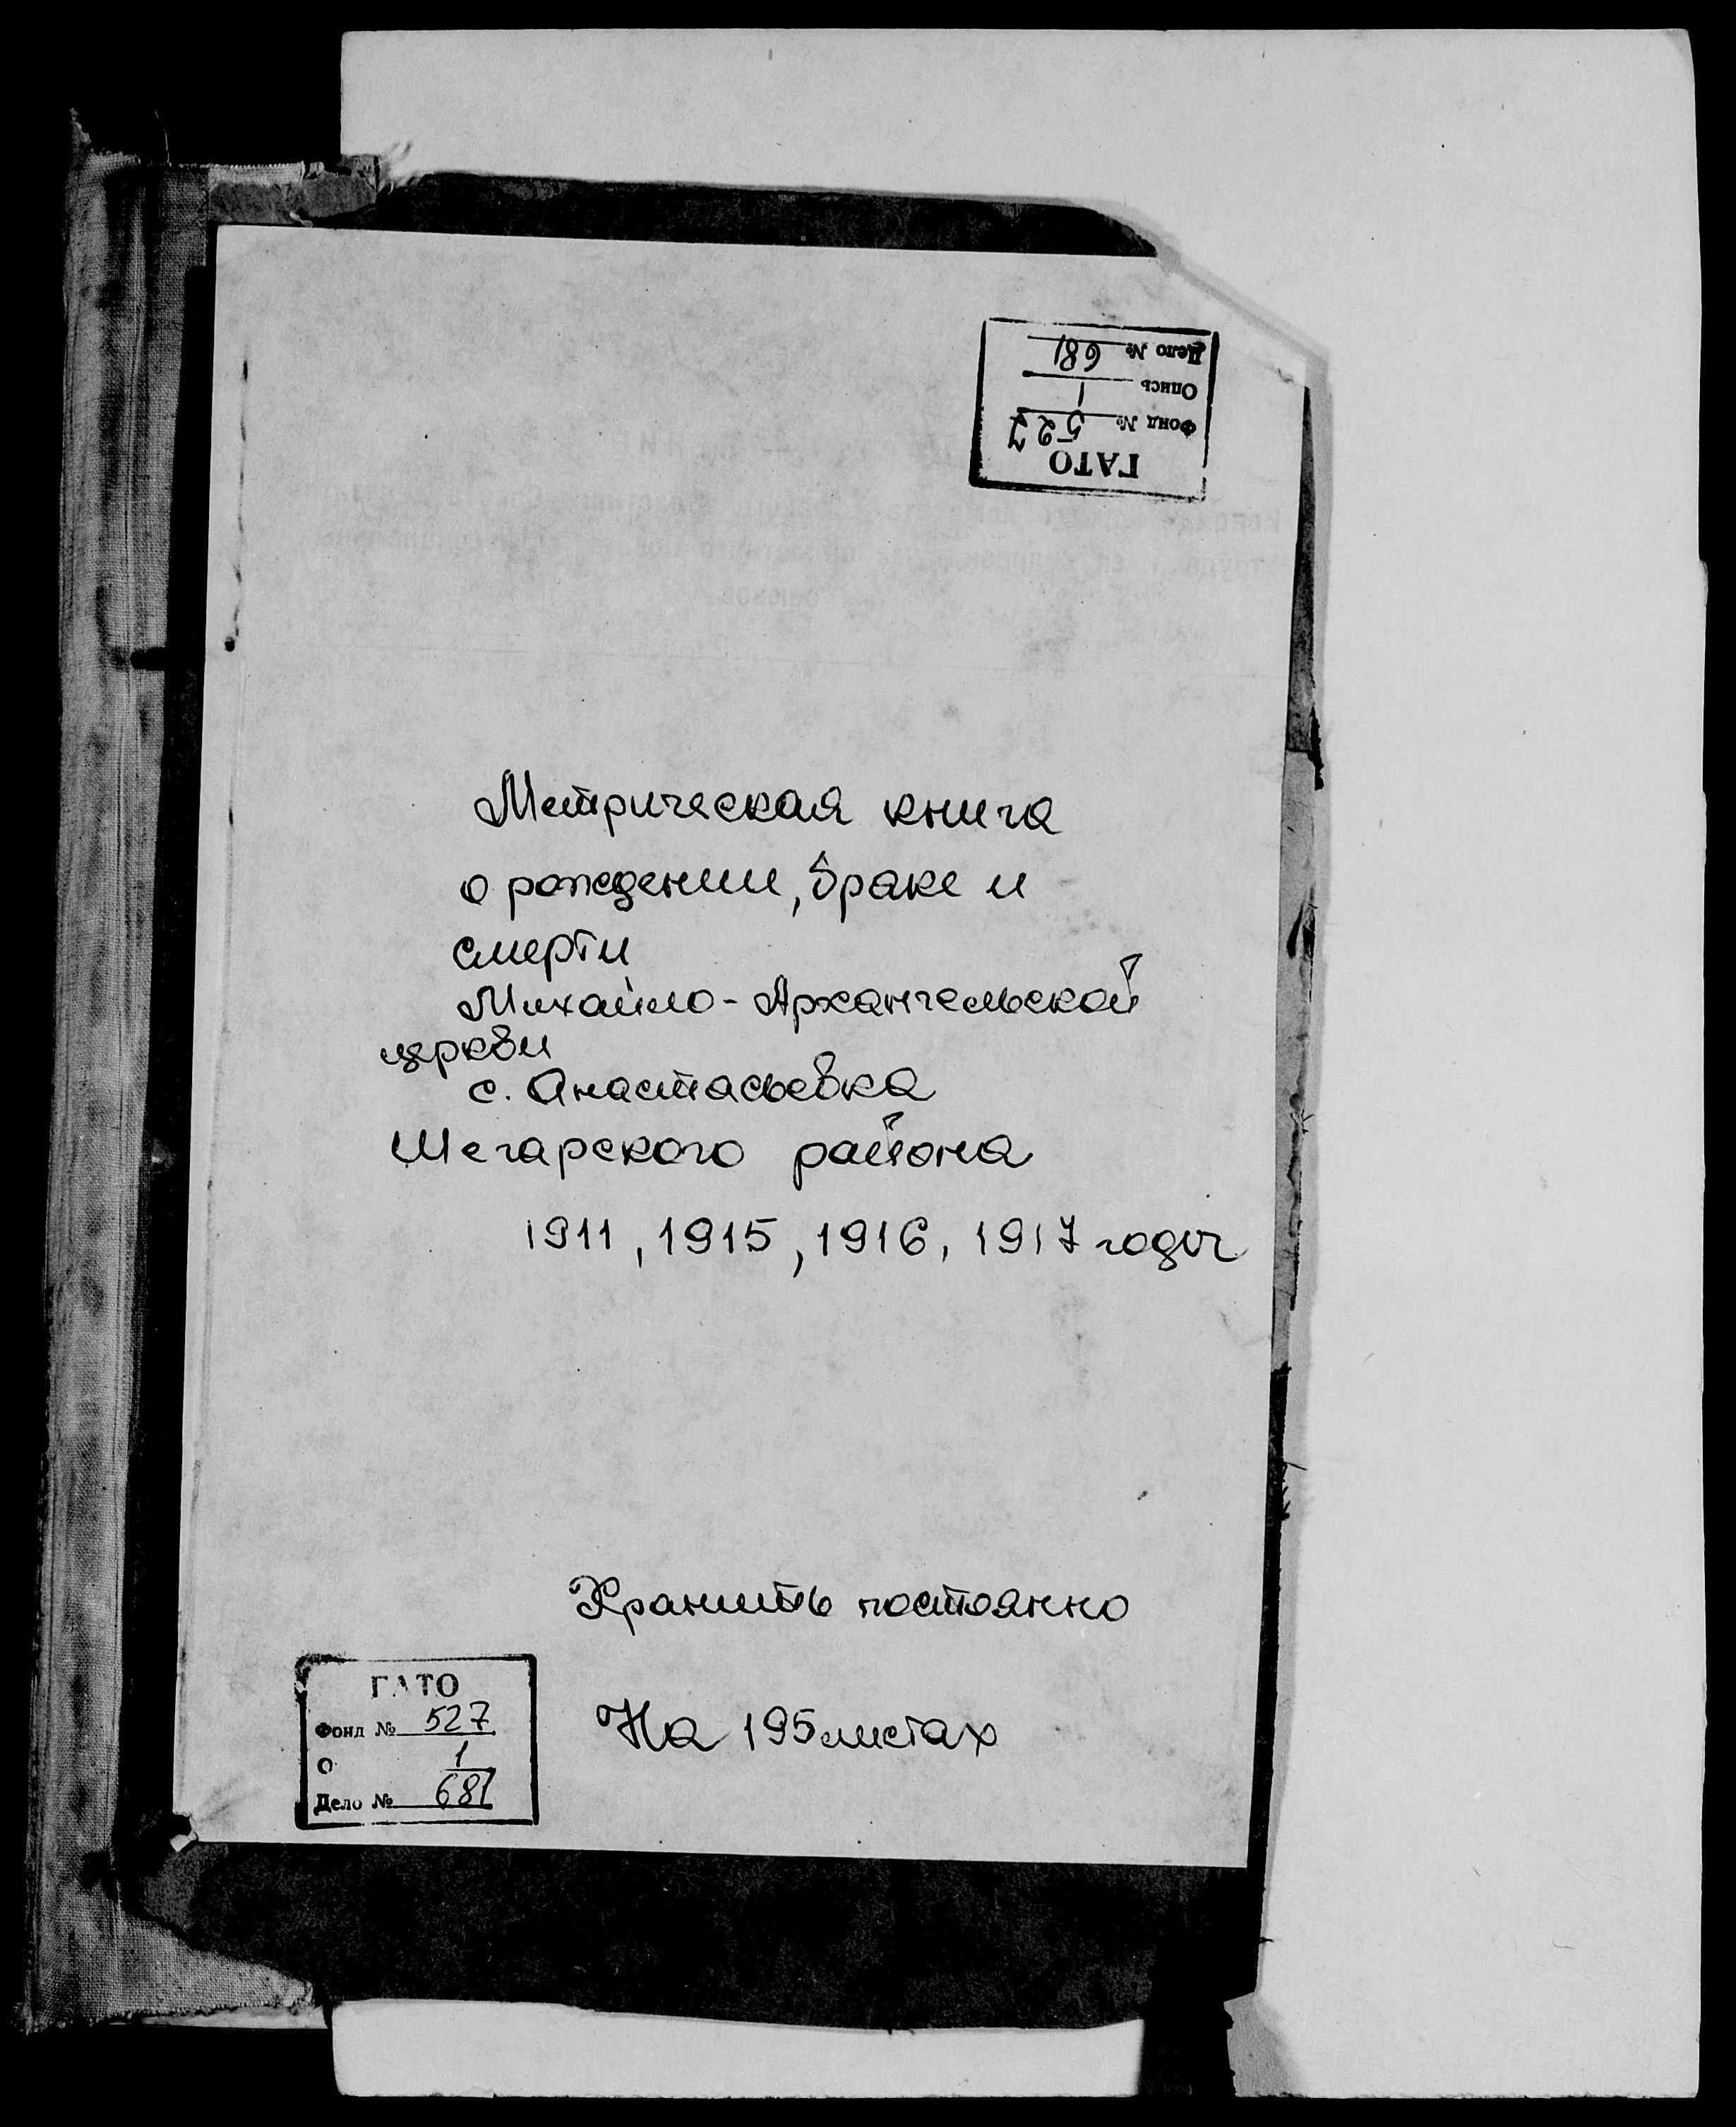 ГАТО
Фонд № 527
Опись 1
Дело № 681
Метрическая книга
о рождении, браке и
смерти
Михайло-Архангельской
церкви
с. Анастасьевка
Шегарского района
1911, 1915, 1916, 1917 годы
Хранить постоянно
На 195 листах
ГАТО
Фонд № 527
О 1
Дело № 681